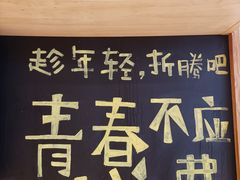 趁年轻,折腾吧
青春不应